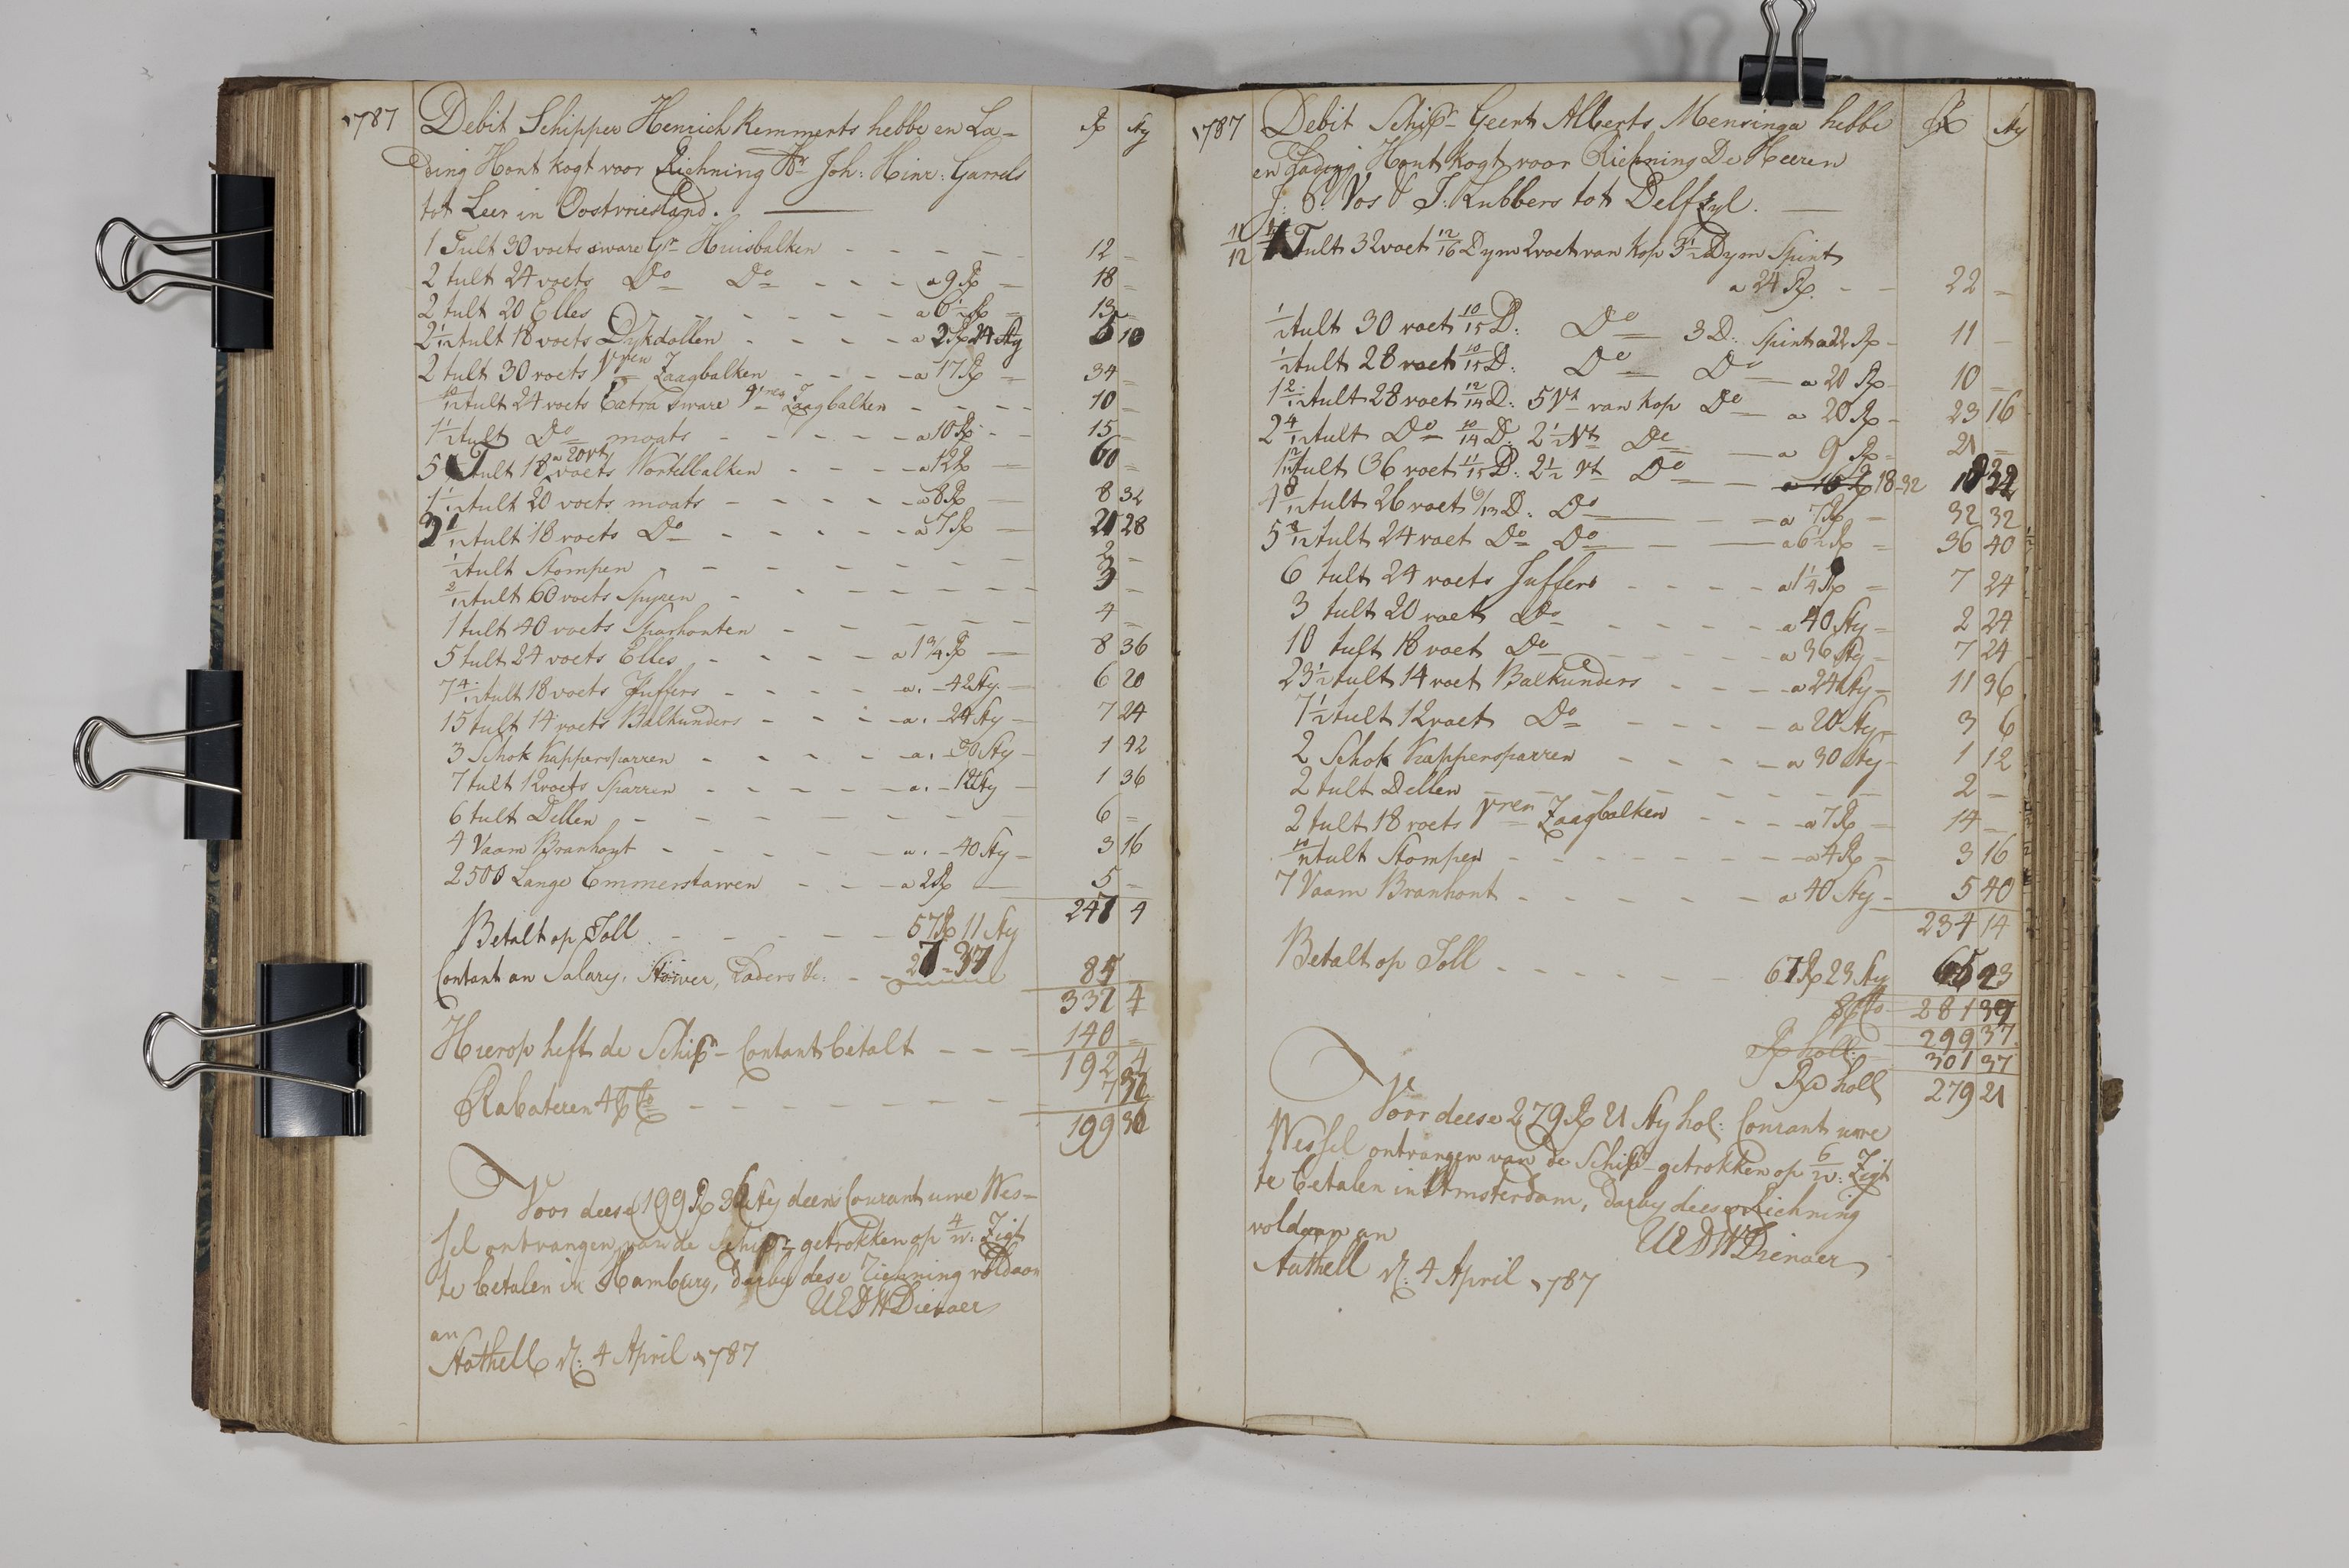 1787 Debit Schipper Henrich Remmerts hebbe en La- R Sty
ding Hont kogt voor Richning Hr Joh: Hinr: Garrels
tot Leer in Oostvriesland.
1 Tult 30 voets sware Gr Huisbalken 12 -
2 tult 24 voets Do Do a 9 R 18 -
2 tult 20 Elles a 6½ R 13 -
2 1/12 tult 18 voets Dykdollen a 2 R 24 Sty 5 10
2 tult 30 voets Vren Zaagbalken a 17 R 34 -
10/12 tult 24 voets Extra sware Vren Zaagbalken 10 -
1½ tult Do moats a 10 R 15 -
5 Tult 18 a 20 vt voets Wortelbalken a 12 R 60 -
1 1/12 tult 20 voets moats a 8 R 8 32
3 1/12 tult 18 voets Do a 7 R 21 28
½ tult Stompen 2 -
2/12 tult 60 voets Spyren 3 -
1 tult 40 voets Sparhonten 4 -
5 tult 24 voets Elles a 1 3/4 R 8 36
7 4/12 tult 18 voets Juffers a. - 42 Sty 6 20
15 tult 14 voets Balkunders a. - 24 Sty 7 24
3 Schok Kappersparren a. - 30 Sty 1 42
7 tult 12 voets Sparren a. - 12 Sty 1 36
6 tult Dellen 6 -
4 Vaam Branhout a. - 40 Sty 3 16
2500 Lange Emmerstawen a 2 R 5 -
247 4
Betalt op Toll 57 R 11 Sty
Contant an Salary, Stower, Raders &c: 27 - 37 85 -
332 4
Hierop heft de Schipr Contant betalt 140 -
192 4
Rabateren 4 pCto 7 32
199 36
Voor deese 199 R 36 Sty deens Courant uwe Wes-
sel ontvangen van de Schipr getrokken op 4/w: Zigt
te betalen in Hamburg, darby dese Richning voldaan
an UEDWDienaer
Stathell d: 4 April 1787
1787 Debit Schipr Geert Alberts Mensinga hebbe R Sty
en Ladging Hont kogt voor Richning De Heeren
J: B: Vos & T: Kubbers tot Delfzyl.
11/12 Tult 32 voet 12/16 Dym 2 voet van kop 3½ Dym Spint
a 24 R. 22 -
½ tult 30 voet 10/15 D: Do 3 D: Spint a 22 R 11 -
½ tult 28 voet 10/15 D: Do Do a 20 R 10 -
1 2/12 tult 28 voet 12/14 D: 5 Vt van kop Do a 20 R 23 16
2 4/12 tult Do 10/14 D: 2½ Vt Do a 9 R 21 -
tult 36 voet 11/15 D: 2½ Vt Do 18-32 18 32
4 8/12 tult 26 voet 9/13 D: Do a 7 R 32 32
5 8/12 tult 24 voet Do Do a 6½ R 36 40
6 tult 24 voets Juffers a 1¼ R 7 24
3 tult 20 voet Do a 40 Sty 2 24
10 tult 18 voet Do a 36 Sty 7 24
23½ tult 14 voet Balkunders a 24 Sty 11 36
7½ tult 12 voet Do a 20 Sty 3 6
2 Schok Kappersparren a 30 Sty 1 12
2 tult Dellen 2 -
2 tult 18 voets Vren Zaagbalken a 7 R 14 -
10/12 tult Stompen a 4 R 3 16
7 Vaam Branhont a 40 Sty 5 40
234 14
Betalt op Toll 67 R 23 Sty 65 23
8 pCto 281 39
R holl: 299 37
301 37
R holl 279 21
Voor deese 279 R 21 Sty hol: Courant uwe
Wessel ontvangen van de Schipr getrokken op 6/w: Zigt
te betalen in Amsterdam, darby deese Richning
voldaan an UEDWDienaer
Stathell d: 4 April 1787